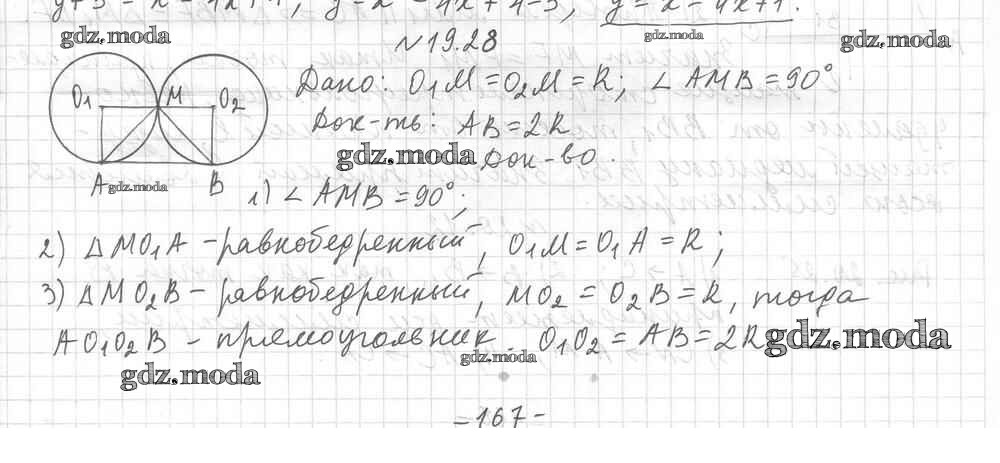 y+3 = x² - 4x + 4; y = x² - 4x + 4 - 3; y = x² - 4x + 1.
gdz.moda gdz.moda gdz.moda
N 19.28
O₁ M O₂
Дано: O₁M = O₂M = R; ∠AMB = 90°
Док-ть: AB = 2R
gdz.moda Док-во.
A gdz.moda B
1) ∠AMB = 90°;
2) △MO₁A - равнобедренный, O₁M = O₁A = R;
3) △MO₂B - равнобедренный, MO₂ = O₂B = R, тогда
AO₁O₂B - прямоугольник. O₁O₂ = AB = 2R gdz.moda
gdz.moda gdz.moda
= 167 -